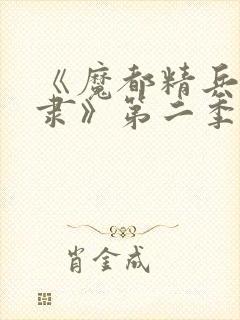 《魔都精兵
隶》第二季
肖金成